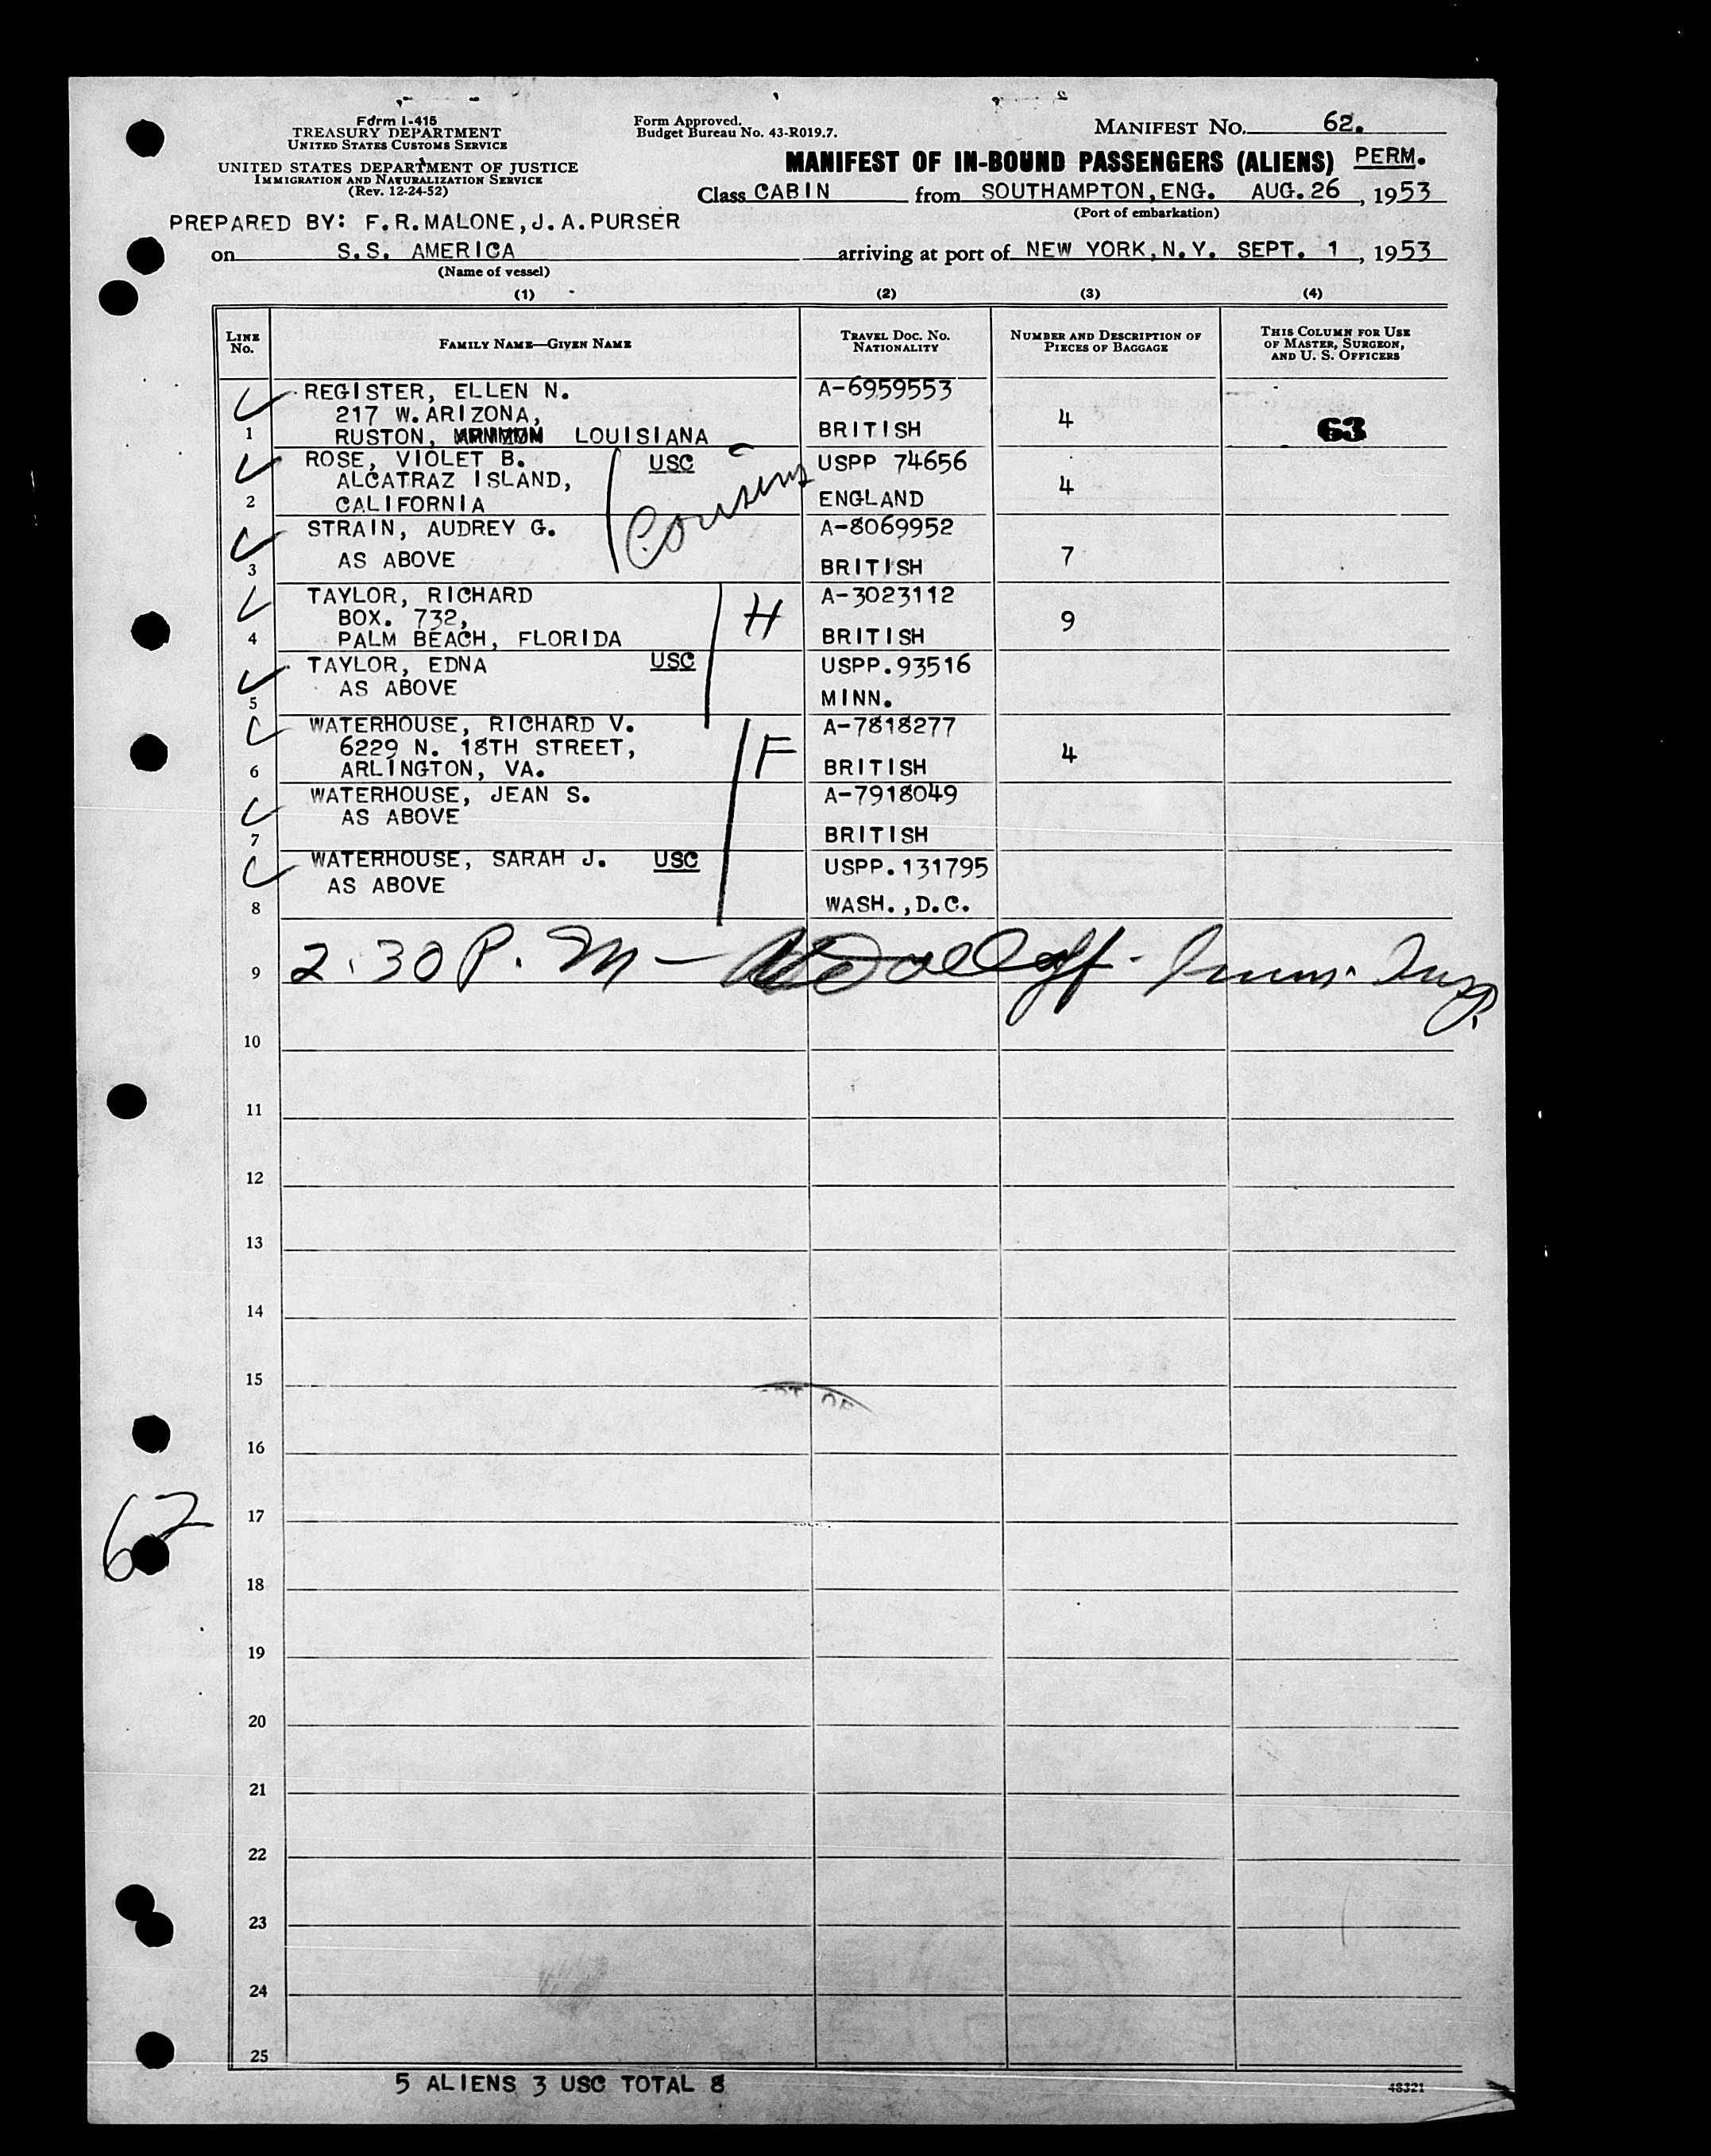 Form I-415
TREASURY DEPARTMENT
UNITED STATES CUSTOMS SERVICE
UNITED STATES DEPARTMENT OF JUSTICE
IMMIGRATION AND NATURALIZATION SERVICE
(Rev. 12-24-52)
Form Approved.
Budget Bureau No. 43-R019.7.
MANIFEST No. 62.
MANIFEST OF IN-BOUND PASSENGERS (ALIENS) PERM.
Class CABIN from SOUTHAMPTON, ENG. AUG. 26, 1953
(Port of embarkation)
PREPARED BY: F.R.MALONE, J.A.PURSER
on S.S. AMERICA arriving at port of NEW YORK, N.Y. SEPT. 1, 1953
(Name of vessel)
(1) (2) (3) (4)
LINE No.
FAMILY NAME—GIVEN NAME
TRAVEL DOC. NO. NATIONALITY
NUMBER AND DESCRIPTION OF PIECES OF BAGGAGE
THIS COLUMN FOR USE OF MASTER, SURGEON, AND U. S. OFFICERS
REGISTER, ELLEN N. A-6959553
217 W. ARIZONA, 4 63
1 RUSTON, LOUISIANA BRITISH
ROSE, VIOLET B. USC USPP 74656
ALCATRAZ ISLAND, 4
2 CALIFORNIA ENGLAND
Cousins
STRAIN, AUDREY G. A-8069952
3 AS ABOVE BRITISH 7
TAYLOR, RICHARD H A-3023112
BOX. 732, 9
4 PALM BEACH, FLORIDA BRITISH
TAYLOR, EDNA USC USPP.93516
AS ABOVE
5 MINN.
WATERHOUSE, RICHARD V. F A-7818277
6229 N. 18TH STREET, 4
6 ARLINGTON, VA. BRITISH
WATERHOUSE, JEAN S. A-7918049
AS ABOVE
7 BRITISH
WATERHOUSE, SARAH J. USC USPP.131795
AS ABOVE
8 WASH.,D.C.
9 2.30 P.M — Imm. Insp.
10
11
12
13
14
15
16
17
62
18
19
20
21
22
23
24
25
5 ALIENS 3 USC TOTAL 8
48321